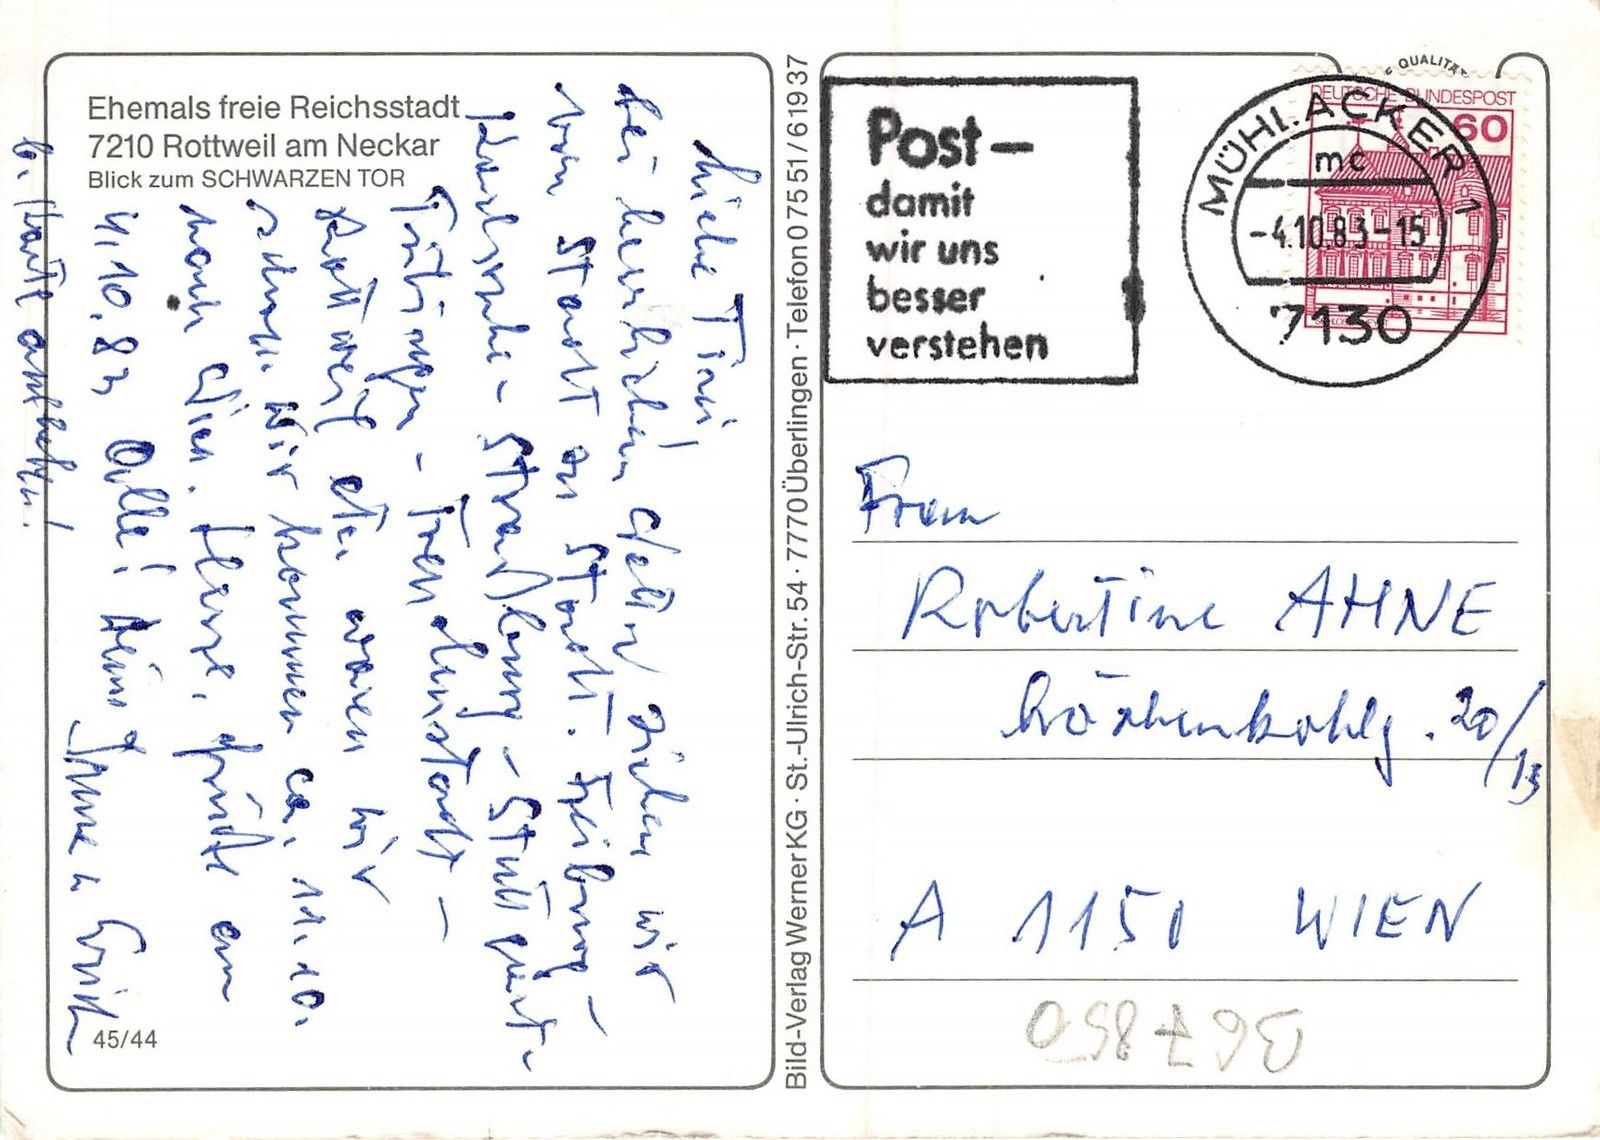 Ehemals freie Reichsstadt
7210 Rottweil am Neckar
Blick zum SCHWARZEN TOR
Liebe Tini,
bei herrlichem Wetter ziehen wir
von Stadt zu Stadt. Freiburg –
Karlsruhe – Straßburg – Stuttgart –
Tübingen – Freudenstadt –
Rottweil etc. waren wir
schon. Wir kommen ca. 11.10.
nach Wien. Herzl. Grüße an
Alle! Deine
4.10.83
b. Karte aufheben!
45/44
Bild-Verlag Werner KG · St.-Ulrich-Str. 54 · 7770 Überlingen · Telefon 0 75 51 / 619 37
Post –
damit
wir uns
besser
verstehen
QUALITÄT
DEUTSCHE BUNDESPOST
60
MÜHLACKER 1
mc
-4.10.83-15
7130
Frau
Robertine AHNE
20/13
A 1150 WIEN